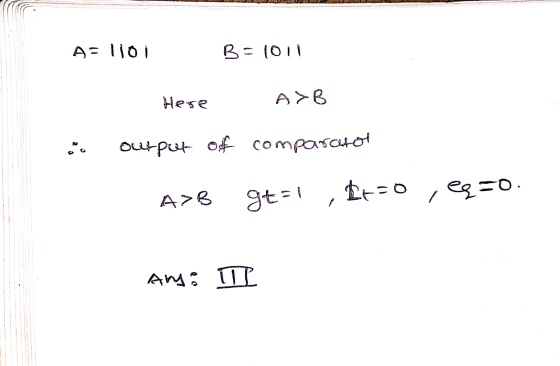 A = 1101 B = 1011
Here A>B
∴ output of comparator
A>B gt=1 , Lt=0 , eq=0.
Ans: III